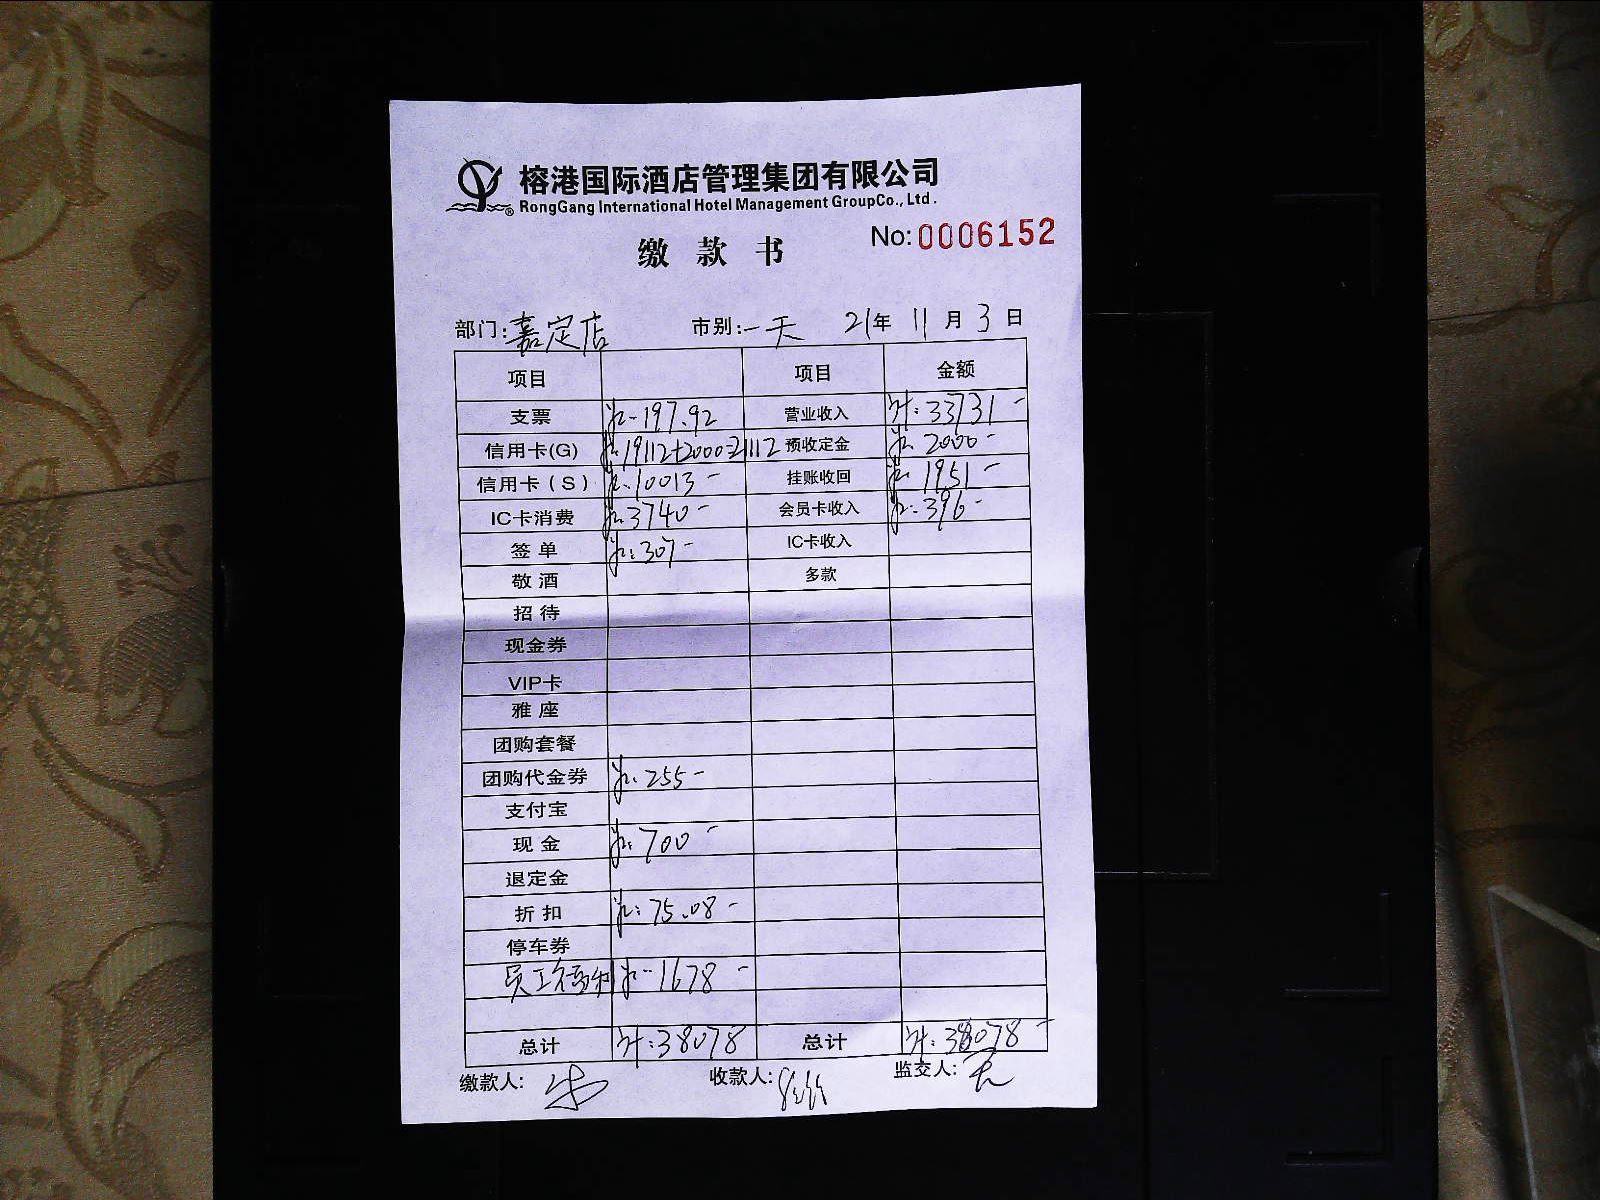 榕港国际酒店管理集团有限公司
RongGang International Hotel Management GroupCo., Ltd.
No:0006152
缴 款 书
部门:嘉定店 市别:一天 21年 11月 3日
项目 项目 金额
支票 197.92 营业收入 计:33731-
信用卡(G) 19112+2000=21112 预收定金 2000-
信用卡(S) 10013- 挂账收回 1951-
IC卡消费 3740- 会员卡收入 396-
签单 307- IC卡收入
敬酒 多款
招待
现金券
VIP卡
雅座
团购套餐
团购代金券 255-
支付宝
现金 700-
退定金
折扣 75.08-
停车券
员工福利 1678-
总计 计:38078 总计 计:38078-
缴款人: 收款人: 监交人: